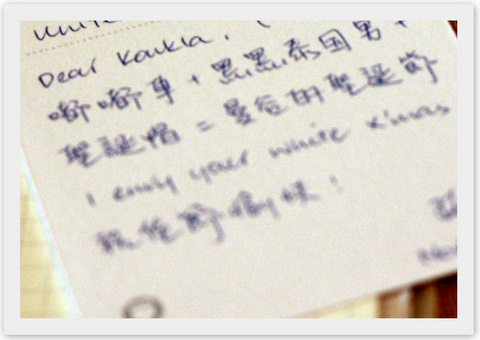 Dear Kaukla,
嘟嘟車 + 黑黑泰国男 +
聖誕帽 = 曼谷的聖誕節
I envy your white x'mas
祝佳節愉快！